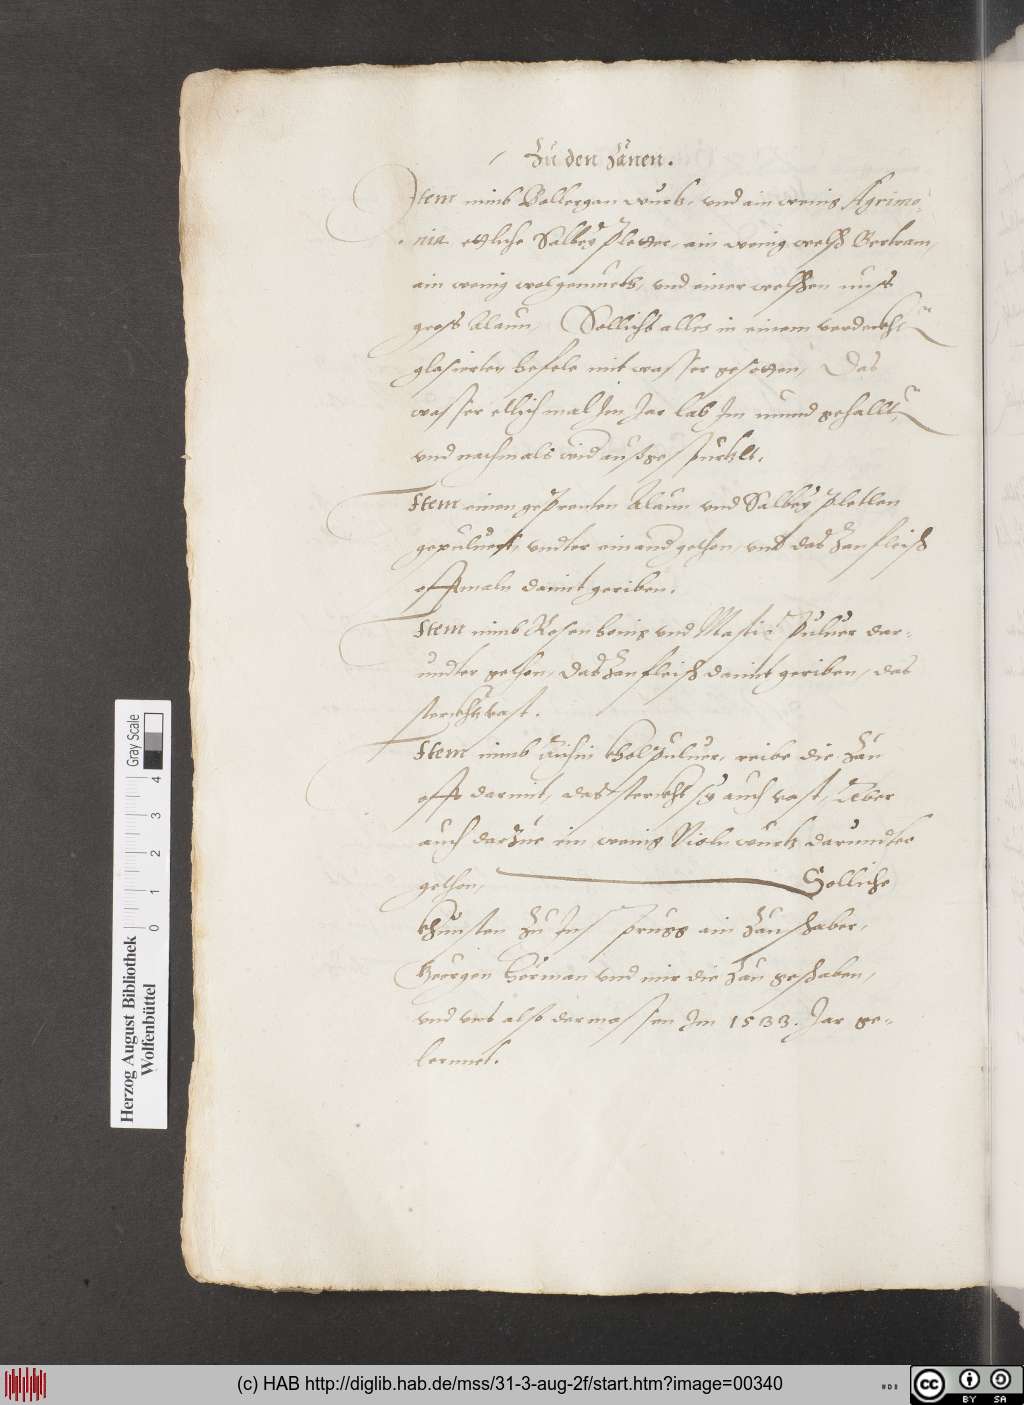 Zu den Zänen.
Item nimb Gallergan wurtz, vnd ain wenig Agrimo-
nia etliche Salbey Pletter, ein wenig welsch Bertram,
ain wenig wolgemuets, vnd einer welschen nuss
gross Alaun, Sollichs alles in einem verdeckhten
glasierten hefele mit wasser gesotten, Das
wasser etlich mal Im Jar lab Im mund gehallten,
und nachmals wider aussgespürtzlt.
Item einen gePrenten Alaun vnd Salbey Pletlen
gepuluert, vndter einander gethon, vnd das Zanfleisch
offtmaln damit geriben.
Item nimb Rosen honig vnd Mastic Puluer dar-
undter gethon, das Zanfleisch damit geriben, das
sterckht vast.
Item nimb Aichin kholPuluer, reibe die Zän
offt darmit, das sterckht sy auch vast, Aber
auch darzue ein wenig Violn wurtz darundter
gethon, Solliche
khünsten hat Zu InsPrugg ain Zanschaber,
Geörgen Hörman vnd mir die Zän geschaben,
vnd vns also dermassen Im 1533. Jar ge-
lernnet.
Herzog August Bibliothek
Wolfenbüttel
0 1 2 3 4
Gray Scale
(c) HAB http://diglib.hab.de/mss/31-3-aug-2f/start.htm?image=00340
HAB
cc BY SA